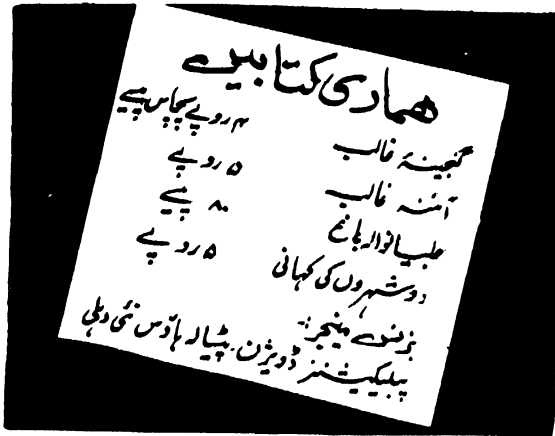 ہماری کتابیں
گنجینۂ غالب ۴ روپے پچاس پیسے
آئینہ غالب ۵ روپے
جلیانوالہ باغ ۸۰ پیسے
دو شہروں کی کہانی ۵ روپے
بزنس مینجر:۔
پبلیکیشنز ڈویژن۔ پٹیالہ ہاؤس نئی دہلی